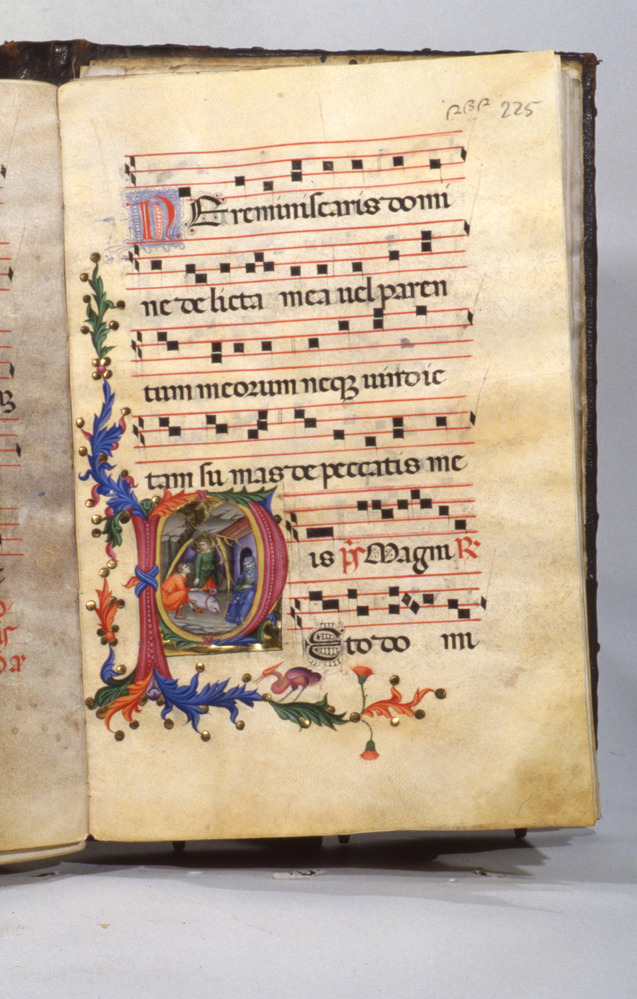 RBR 225
NE reminiscaris domi
ne de licta mea uel paren
tum meorum neqꝫ uindic
tam su mas de peccatis me
is ps Magni R
P Eto do mi